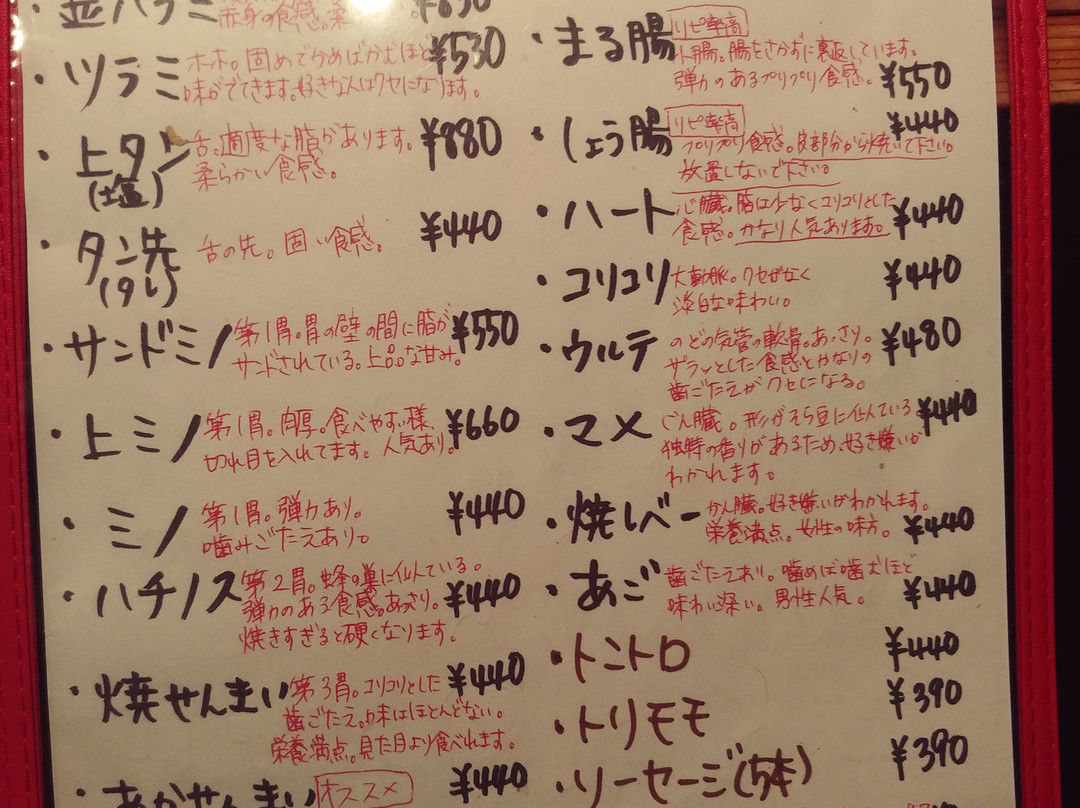 並バラミ
赤身の食感。柔
¥830
・ツラミ
ホホ。固めでかめばかむほど
味がでてきます。好きな人はクセになります。
¥530
・上タン
(塩)
舌。適度な脂があります。
柔らかい食感。
¥880
・タン先
(タレ)
舌の先。固い食感。
¥440
・サンドミノ
第1胃。胃の壁の間に脂が
サンドされている。上品な甘み。
¥550
・上ミノ
第1胃。肉厚。食べやすい様、
切れ目を入れてます。人気あり。
¥660
・ミノ
第1胃。弾力あり。
噛みごたえあり。
¥440
・ハチノス
第2胃。蜂の巣に似んている。
弾力のある食感。あっさり。
焼きすぎると硬くなります。
¥440
・焼せんまい
第3胃。コリコリとした
歯ごたえ。味はほとんどない。
栄養満点。見た目より食べれます。
¥440
・あかせんまい
オススメ
¥440
・まる腸
リピ率高
小腸。腸をさかずに裏返しています。
弾力のあるプリプリ食感。
¥550
・しょう腸
リピ率高
プリプリ食感。皮部分から焼いて下さい。
放置しないで下さい。
¥440
・ハート
心臓。脂は少なくコリコリとした
食感。かなり人気あります。
¥440
・コリコリ
大動脈。クセがなく
淡白な味わい。
¥440
・ウルテ
のどの気管の軟骨。あっさり。
ザラッとした食感とかなりの
歯ごたえがクセになる。
¥480
・マメ
じん臓。形がそら豆に似んている
独特の香りがあるため、好き嫌いが
わかれます。
¥440
・焼レバー
かん臓。好き嫌いがわかれます。
栄養満点。女性の味方。
¥440
・あご
歯ごたえあり。噛めば噛むほど
味わい深い。男性人気。
¥440
・トントロ
¥440
・トリモモ
¥390
・ソーセージ(5本)
¥390